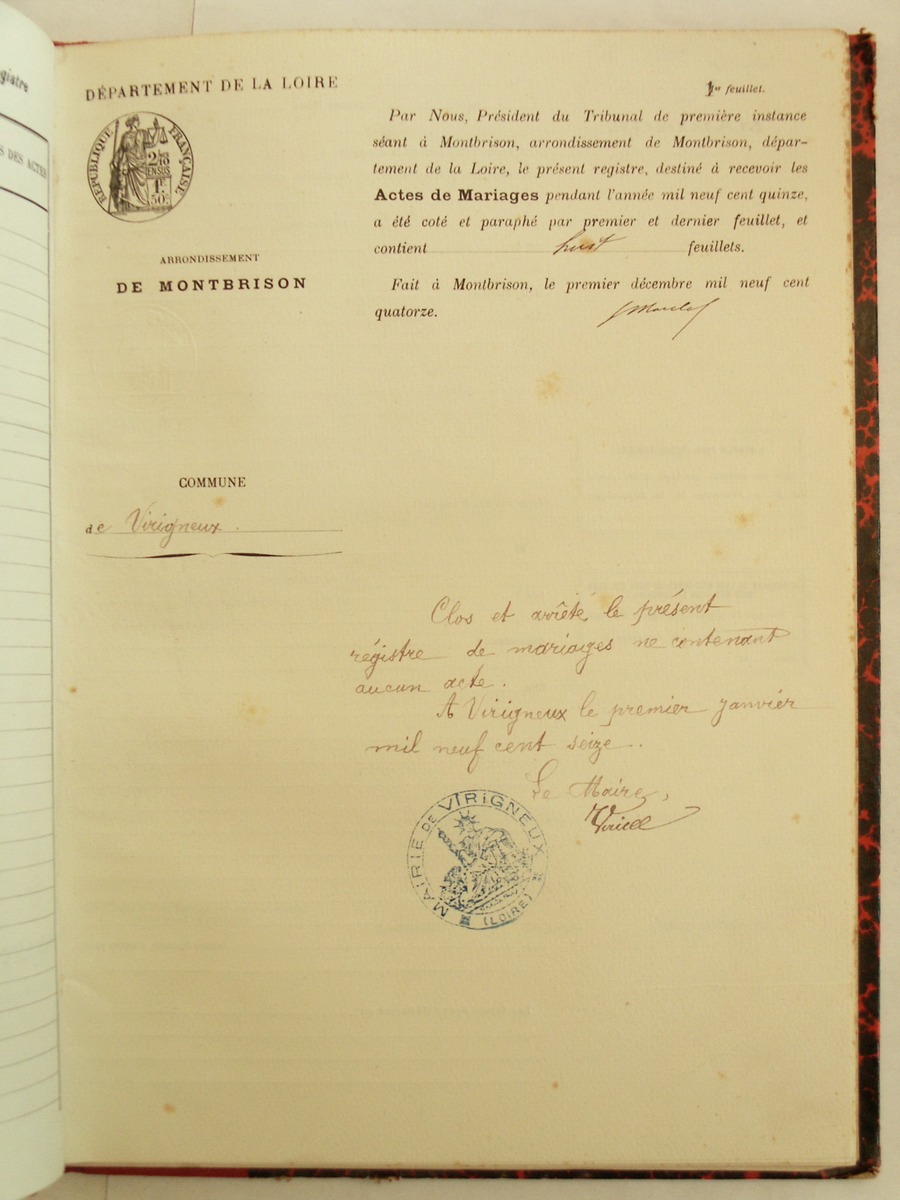 gistre
S DES ACTES
DÉPARTEMENT DE LA LOIRE
RÉPUBLIQUE FRANÇAISE.
ARRONDISSEMENT
DE MONTBRISON
COMMUNE
de Virigneux.
1er feuillet.
Par Nous, Président du Tribunal de première instance
séant à Montbrison, arrondissement de Montbrison, dépar-
tement de la Loire, le présent registre, destiné à recevoir les
Actes de Mariages pendant l'année mil neuf cent quinze,
a été coté et paraphé par premier et dernier feuillet, et
contient huit feuillets.
Fait à Montbrison, le premier décembre mil neuf cent
quatorze.
Clos et arrêté le présent
régistre de mariages ne contenant
aucun acte.
A Virigneux le premier janvier
mil neuf cent seize.
Le Maire,
MAIRIE DE VIRIGNEUX
(LOIRE)